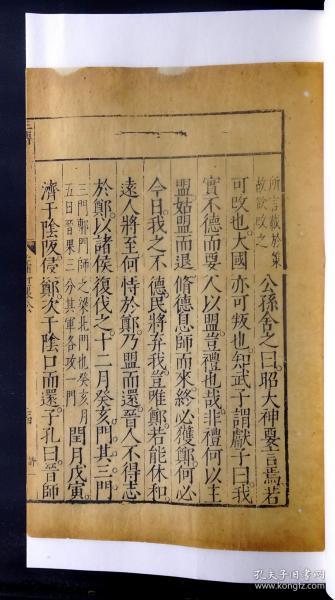 所言載於策
故欲改之
公孫舍之曰昭大神要言焉若
可改也大國亦可叛也知武子謂獻子曰我
實不德而要人以盟豈禮也哉非禮何以主
盟姑盟而退脩德息師而來終必獲鄭何必
今日我之不德民將弃我豈唯鄭若能休和
遠人將至何恃於鄭乃盟而還晉人不得志
於鄭以諸侯復伐之十二月癸亥門其三門
三門鄟門師之梁北門也癸亥月
五日晉果三分其軍各攻一門
閏月戊寅
濟于陰阪侵鄭次于陰口而還子孔曰晉師
孔夫子旧书网